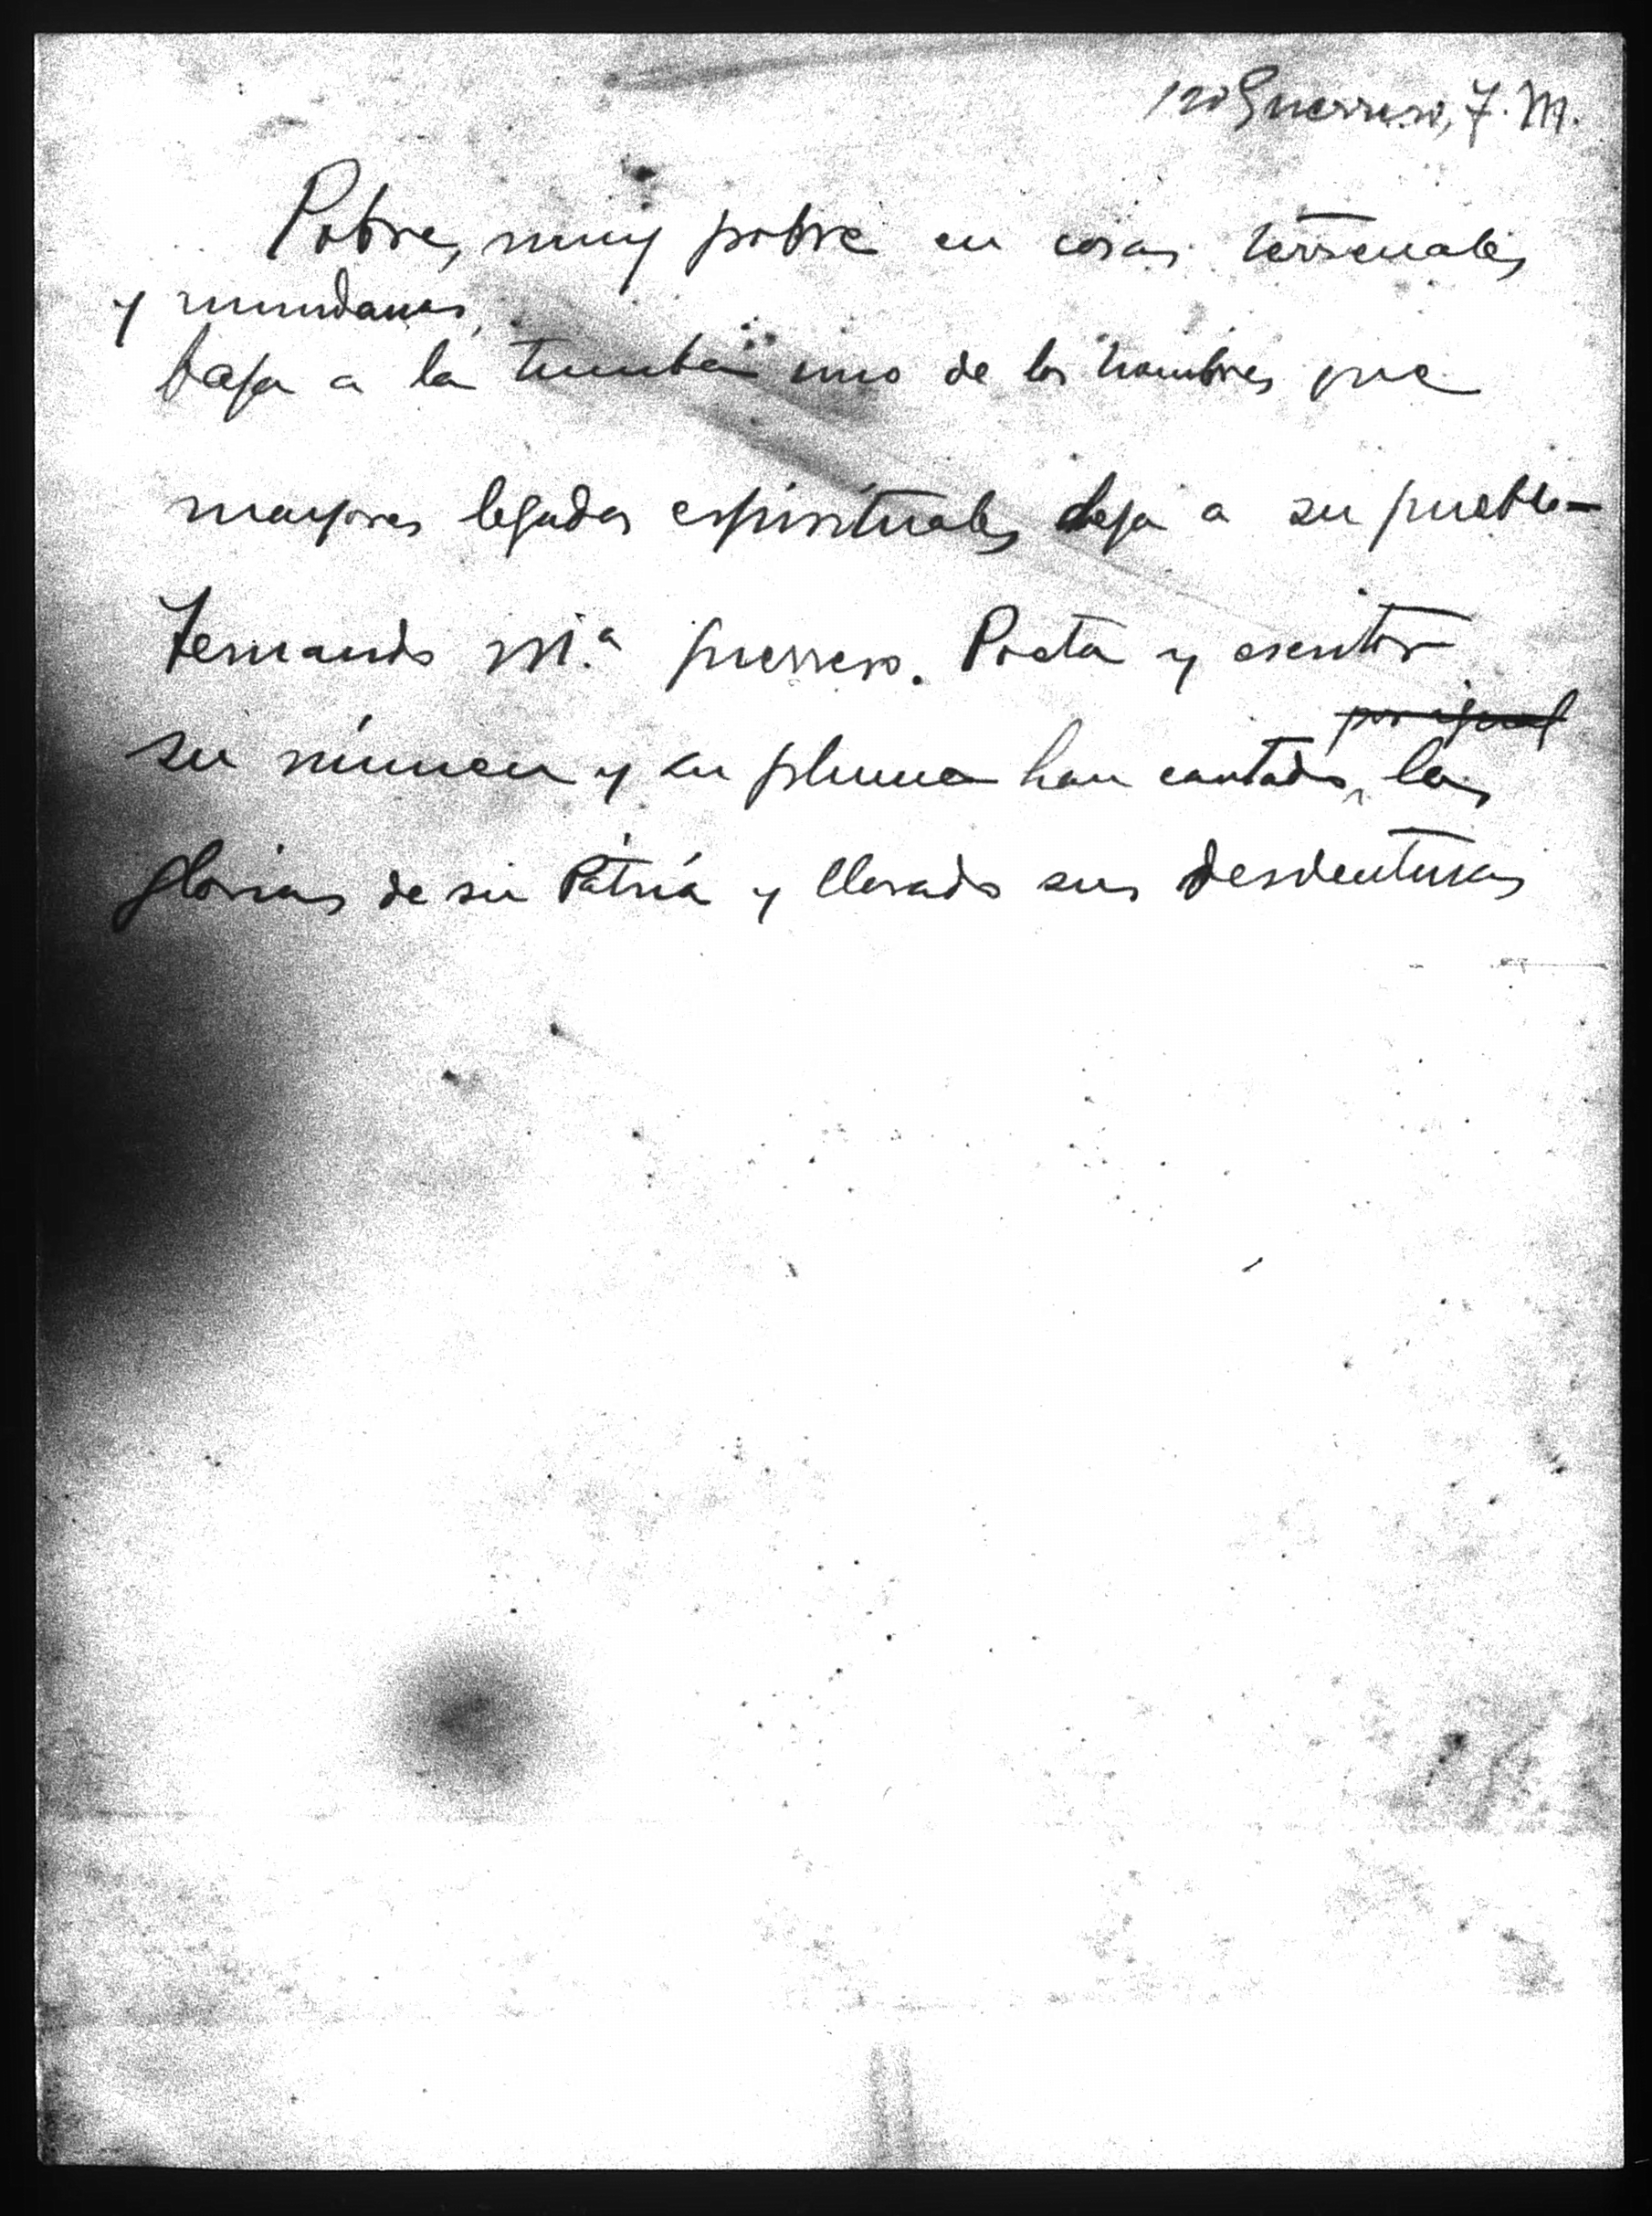 120 Guerrero, F. M.
Pobre, muy pobre en cosas terrenales
y mundanas,
baja a la tumba uno de los hombres que
mayores legados espirituales deja a su pueblo—
Fernando M.ª Guerrero. Poeta y escritor
por igual
su númen y su pluma han cantado las
glorias de su Patria y llorado sus desventuras